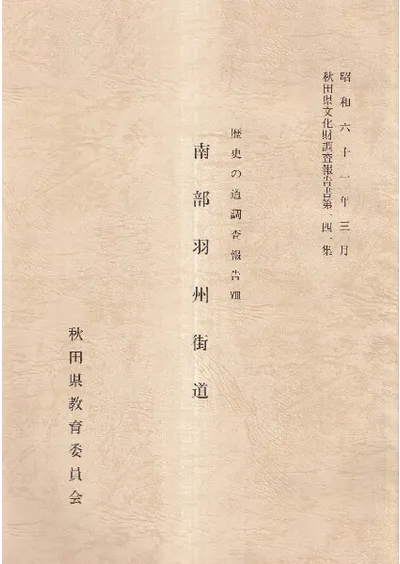 昭和六十一年三月
秋田県文化財調査報告書第一四一集
歴史の道調査報告Ⅷ
南部羽州街道
秋田県教育委員会